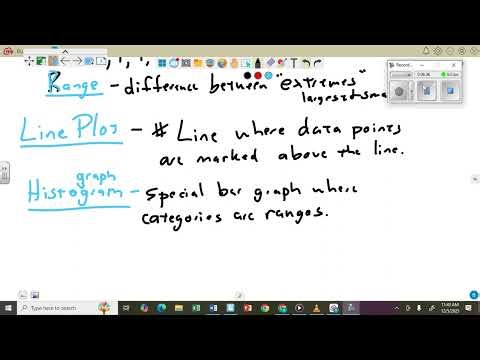 Range - difference between "extremes"
largest & sma
Line Plot - # Line where data points
are marked above the line.
graph
Histogram - special bar graph where
categories are ranges.
Type here to search
11:40 AM